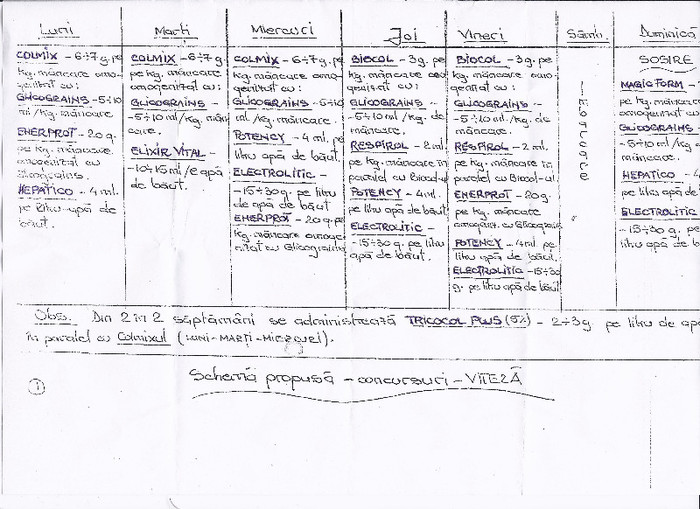 Luni
COLMIX - 6÷7g. pe
kg. mâncare omo-
genizat cu:
GLICOGRAINS - 5÷10
ml/kg. mâncare.
ENERPROT - 20g.
pe kg. mâncare
omogenizat cu
Glicograins.
HEPATICO - 4 ml.
pe litru apă de
băut.
Marți
COLMIX - 6÷7g
pe kg. mâncare
omogenizat cu:
GLICOGRAINS -
- 5÷10 ml/kg. mân
care.
ELIXIR VITAL -
- 10÷15 ml/l apă
de băut.
Miercuri
COLMIX - 6÷7g. pe
kg. mâncare omo-
genizat cu:
GLICOGRAINS - 5÷10
ml/kg. mâncare.
POTENCY - 4 ml. pe
litru apă de băut.
ELECTROLITIC -
- 15÷30g. pe litru
de apă de băut
ENERPROT - 20g. pe
kg. mâncare omoge
nizat cu Glicograins
Joi
BIOCOL - 3g. pe
kg. mâncare omo
genizat cu:
GLICOGRAINS -
- 5÷10 ml/kg. de
mâncare.
RESPIROL - 2 ml.
pe kg. mâncare în
paralel cu Biocol-ul
POTENCY - 4 ml.
pe litru apă de băut
ELECTROLITIC -
- 15÷30 g. pe litru
apă de băut.
Vineri
BIOCOL - 3g. pe
kg. mâncare omo-
genizat cu:
GLICOGRAINS -
- 5÷10 ml/kg. de
mâncare.
RESPIROL - 2 ml.
pe kg. mâncare în
paralel cu Biocol-ul.
ENERPROT - 20g.
pe kg. mâncare
omogeniz. cu Glicograins
POTENCY - 4 ml. pe
litru apă de băut.
ELECTROLITIC - 15÷30
g. pe litru apă de băut
Sâmb.
Imbarcare
Duminică
SOSIRE
MAGIC FORM -
pe kg. mâncare
omogenizat cu
GLICOGRAINS
- 5÷10 ml/kg.
mâncare.
HEPATICO - 4
pe litru apă de
ELECTROLITIC
- 15÷30 g. pe
litru apă de b
Obs. Din 2 în 2 săptămâni se administrează TRICOCOL PLUS (5%) - 2÷3g. pe litru de ap
în paralel cu Colmixul (LUNI-MARȚI-MIERCURI).
Schemă propusă - concursuri - VITEZĂ
1